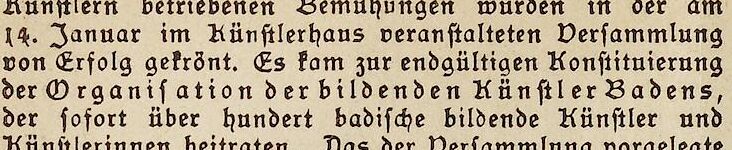 Künstlern betriebenen Bemühungen wurden in der am
14. Januar im Künstlerhaus veranstalteten Versammlung
von Erfolg gekrönt. Es kam zur endgültigen Konstituierung
der Organisation der bildenden Künstler Badens,
der sofort über hundert badische bildende Künstler und
Künstlerinnen beitraten. Das der Versammlung vorgelegte